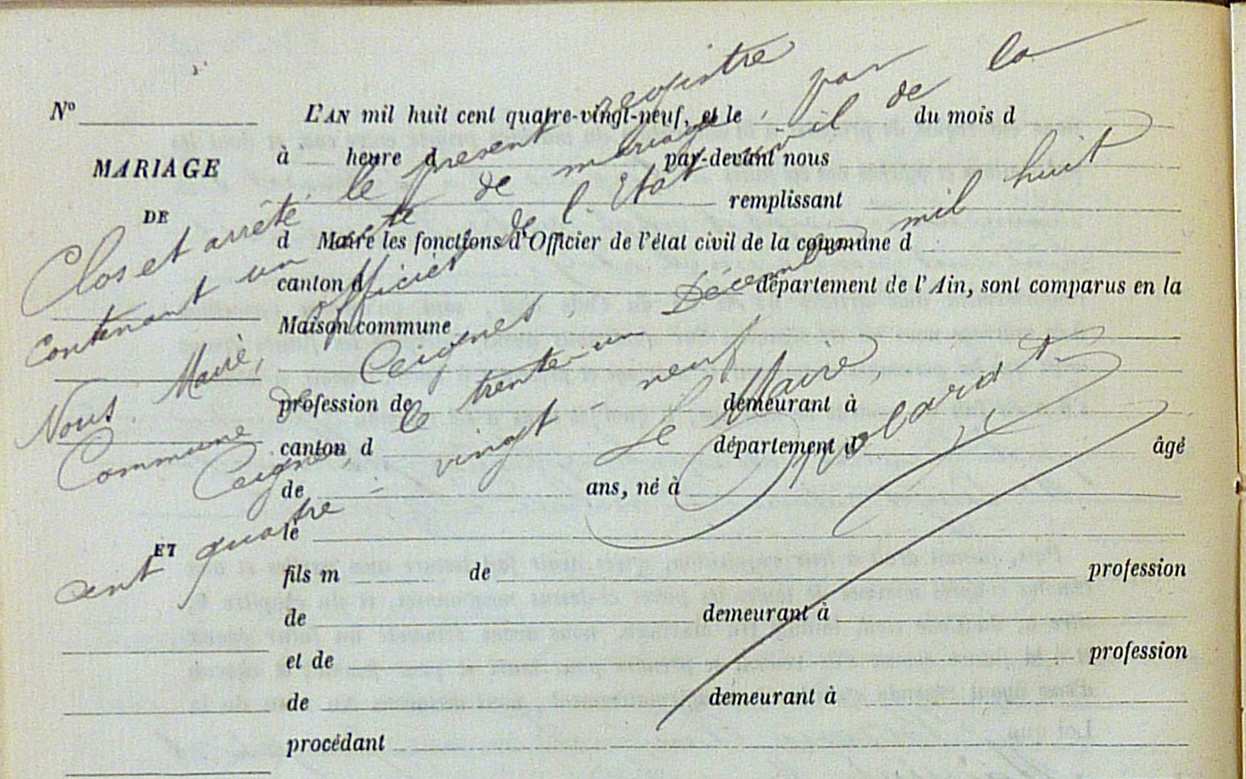 N°
MARIAGE
DE
ET
L'AN mil huit cent quatre-vingt-neuf, et le du mois d
à heure d par-devant nous
remplissant
d Maire les fonctions d'Officier de l'état civil de la commune d
canton d département de l'Ain, sont comparus en la
Maison commune
profession de demeurant à
canton d département d âgé
de ans, né à
le
fils m de profession
de demeurant à
et de profession
de demeurant à
procédant
Clos et arrêté le présent registre
Contenant un acte de mariage par
Nous Maire, officier de l'Etat civil de la
Commune de Ceignes
Ceignes, le trente-un Décembre mil huit
cent quatre-vingt-neuf
Le Maire,